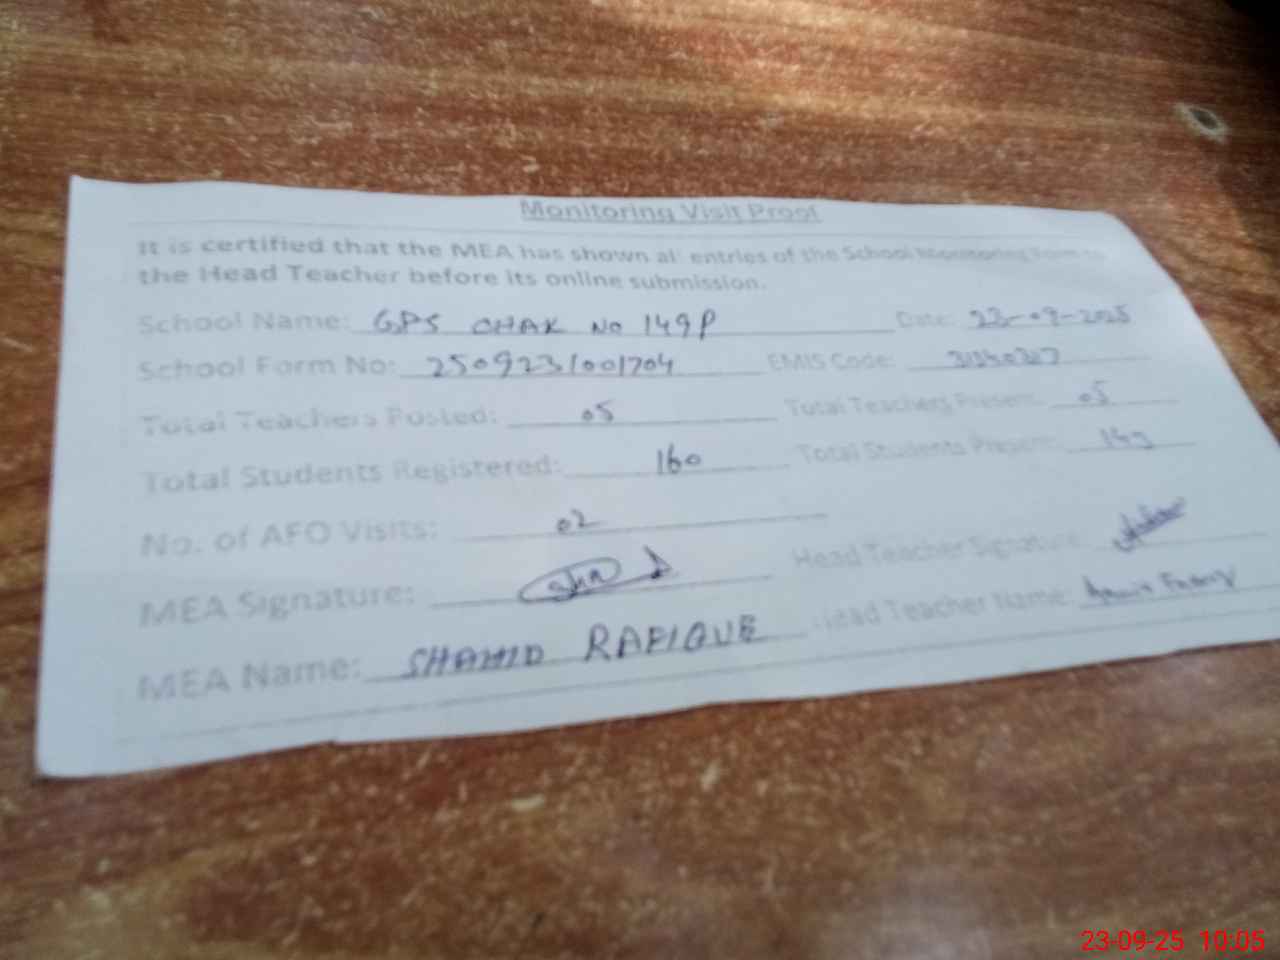 Monitoring Visit Proof
It is certified that the MEA has shown all entries of the School Monitoring Form to
the Head Teacher before its online submission.
School Name: GPS CHAK No 149P Date: 23-09-2025
School Form No: 250923/001704 EMIS Code:
Total Teachers Posted: 05 Total Teachers Present: 05
Total Students Registered: 160 Total Students Present:
No. of AFO Visits: 02
MEA Signature: Head Teacher Signature:
MEA Name: SHAHID RAFIQUE Head Teacher Name:
23-09-25 10:05